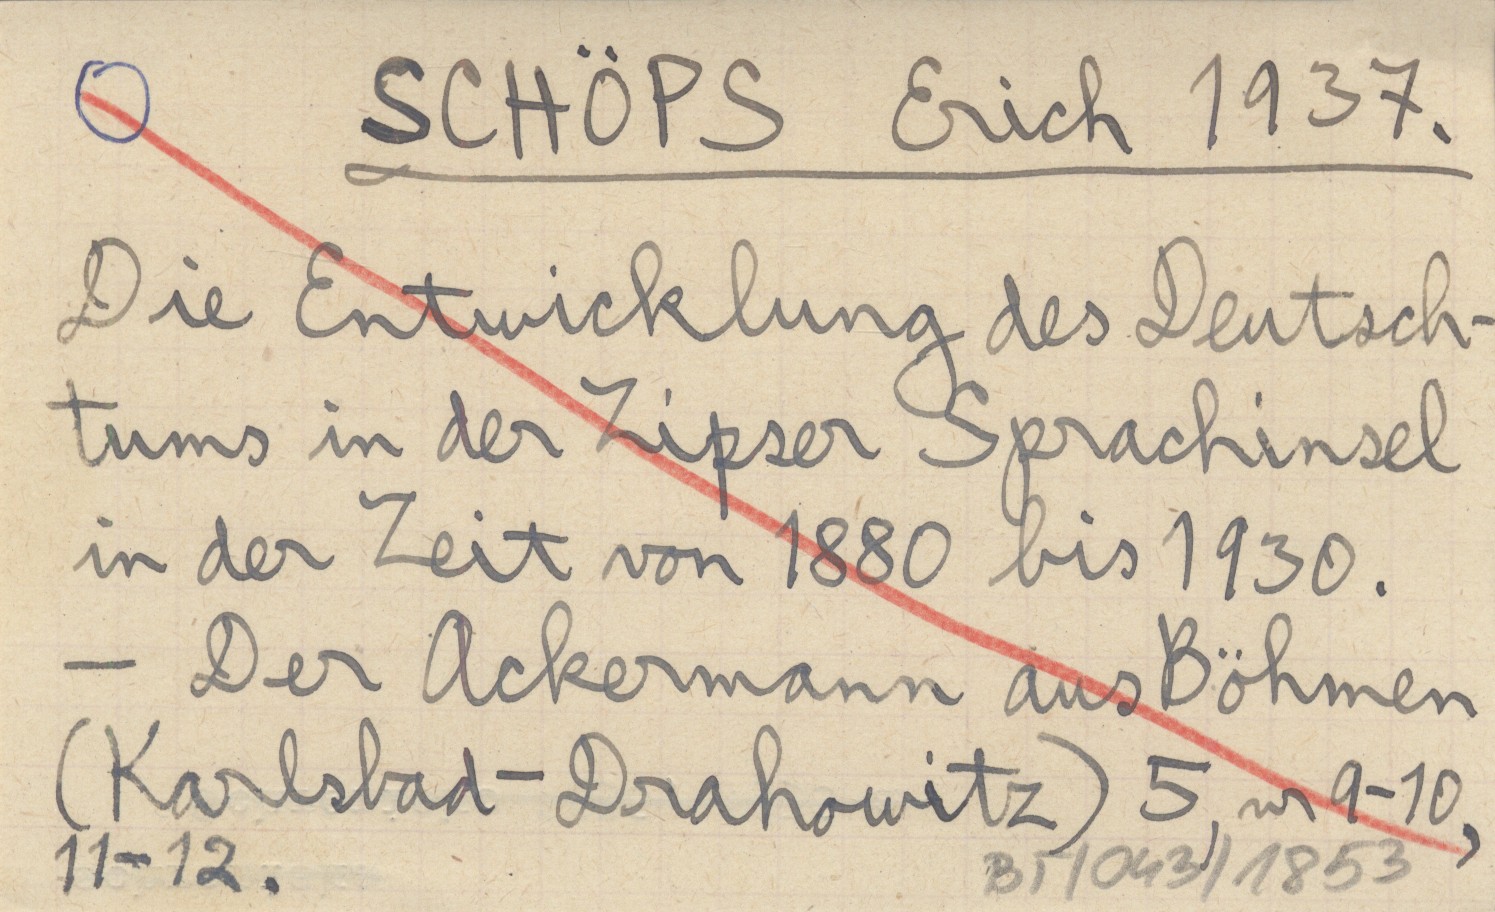 SCHÖPS Erich 1937.
Die Entwicklung des Deutsch-
tums in der Zipser Sprachinsel
in der Zeit von 1880 bis 1930.
– Der Ackermann aus Böhmen
(Karlsbad-Drahowitz) 5, nr 9-10,
11-12.
BT/043/1853